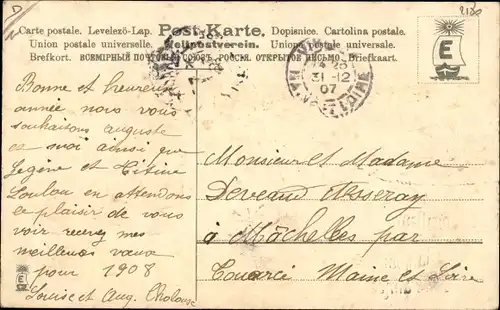 D
2180
Carte postale. Levelező-Lap. Post-Karte. Dopisnice. Cartolina postale.
Union postale universelle. Weltpostverein. Union postale universelle.
Brefkort. ВСЕМІРНЫЙ ПОЧТОВЫЙ СОЮЗЪ. РОССІЯ. ОТКРЫТОЕ ПИСЬМО. Briefkaart.
E
31-12
07
LOIRE
Bonne et heureuse
année nous vous
souhaitons auguste
et moi ainsi que
Regine et Titine
Loulou en attendons
le plaisir de vous
voir recevez mes
meilleurs vœux
pour 1908
Louise et Aug.
Monsieur et Madame
à Mâchelles par
Touarcé Maine et Loire
E